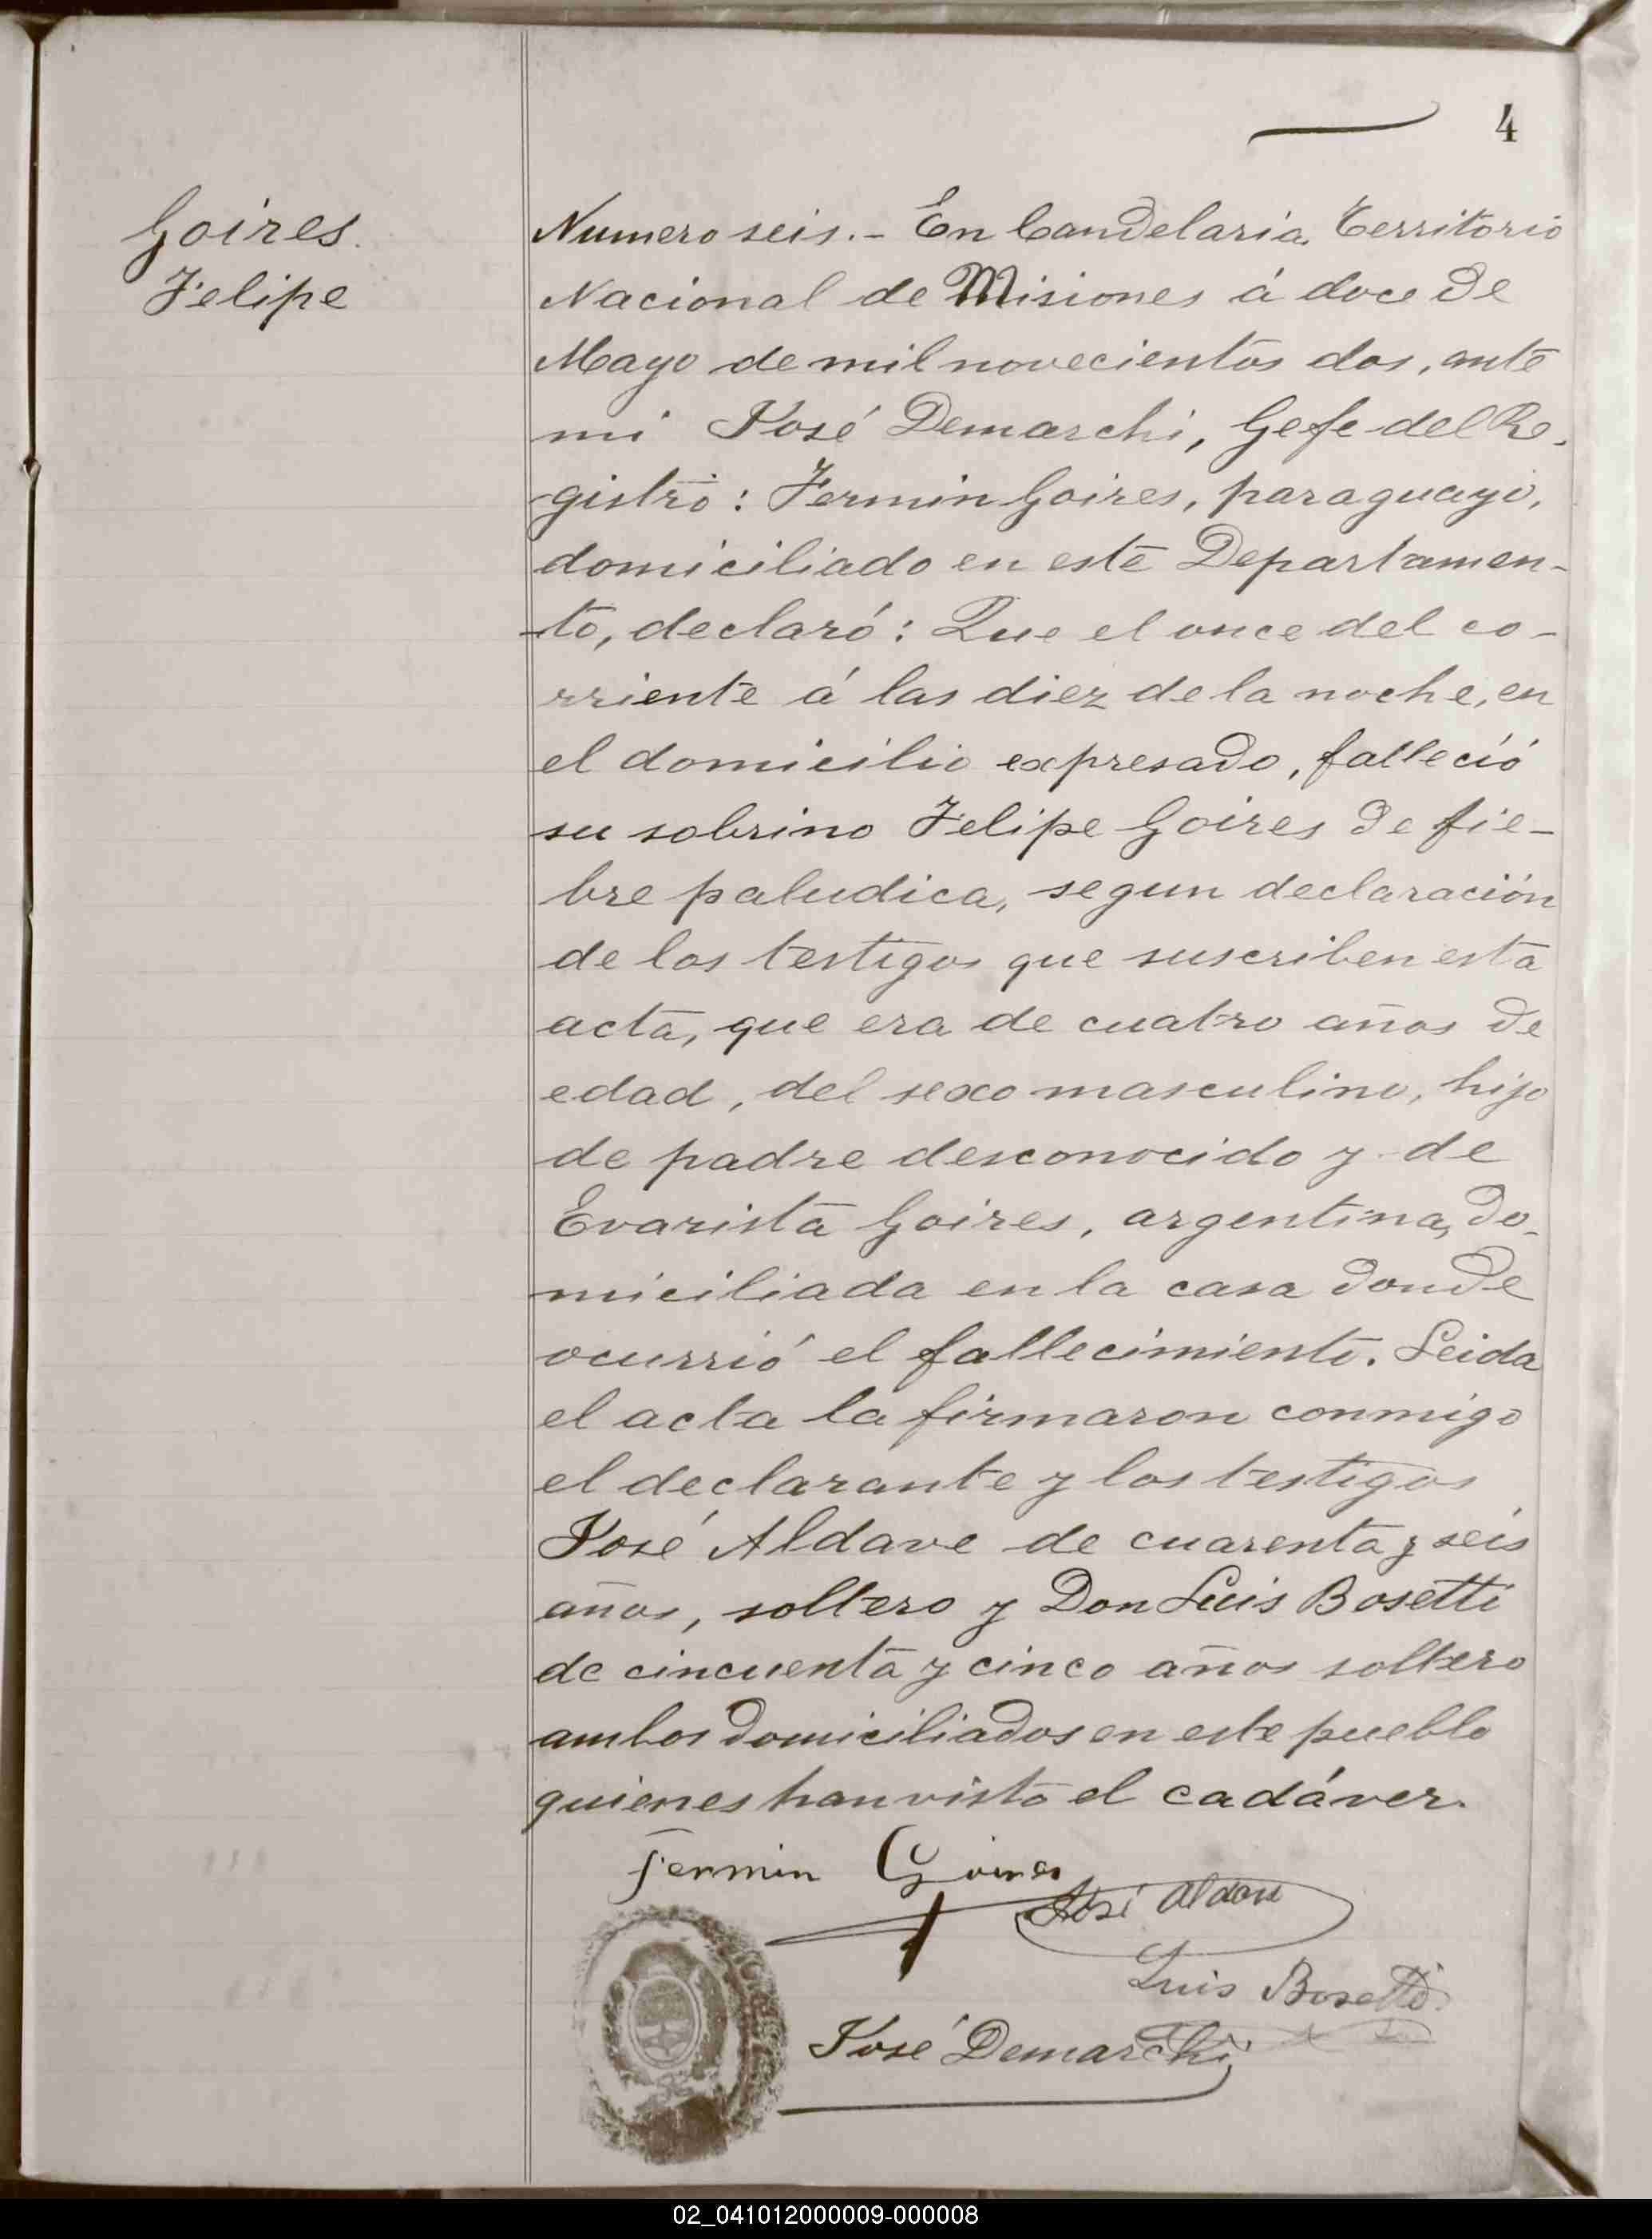 4
Goires.
Felipe
Numero seis.- En Candelaria, Territorio
Nacional de Misiones á doce de
Mayo de mil novecientos dos, ante
mi José Demarchi, Gefe del Re-
gistro: Fermin Goires, paraguayo,
domiciliado en este Departamen-
to, declaró: Que el once del co-
rriente á las diez de la noche, en
el domicilio expresado, falleció
su sobrino Felipe Goires de fie-
bre paludica, segun declaración
de los testigos que suscriben esta
acta, que era de cuatro años de
edad, del sexo masculino, hijo
de padre desconocido y de
Evarista Goires, argentina, do-
miciliada en la casa donde
ocurrió el fallecimiento. Leida
el acta la firmaron conmigo
el declarante y los testigos
José Aldave de cuarenta y seis
años, soltero y Don Luis Bosetti
de cincuenta y cinco años soltero
ambos domiciliados en este pueblo
quienes han visto el cadáver.
Fermin Goires
José Aldave
Luis Bosetti
José Demarchi
02_041012000009-000008